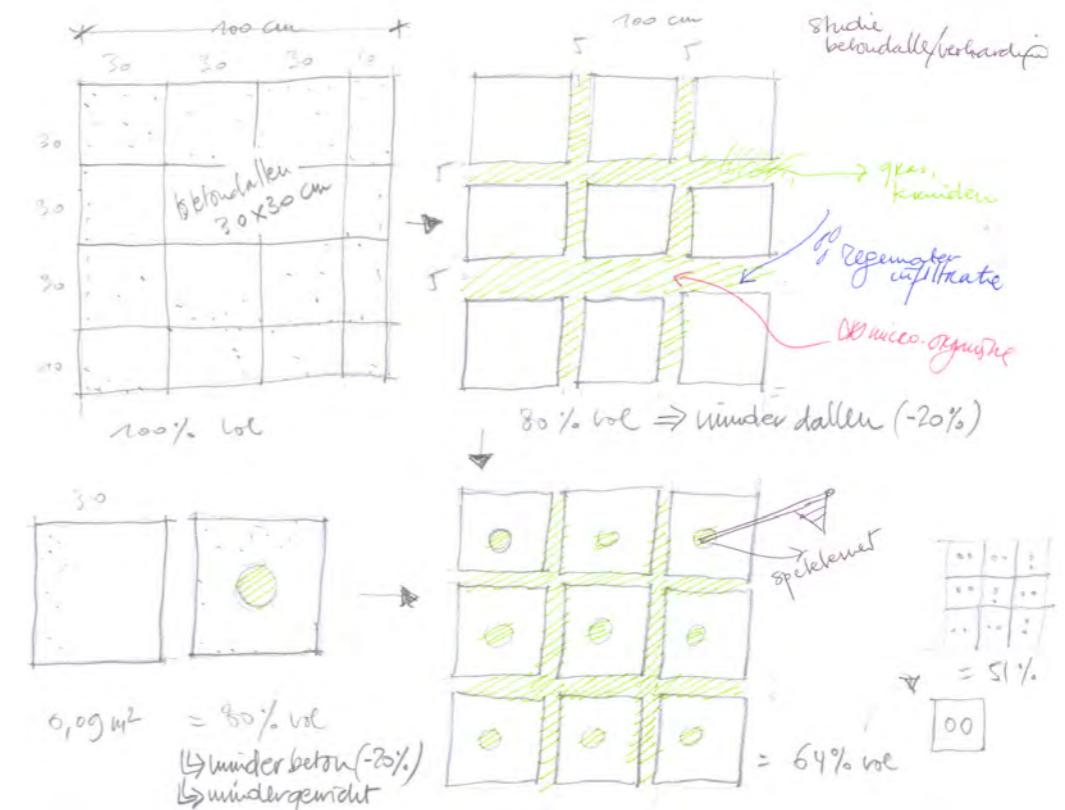 100 cm
30 30 30 10
30
30
30
10
betondallen
30x30 cm
100% vol
100 cm
5 5
5
5
studie
betondalle/verharding
gras,
kruiden
regenwater
infiltratie
micro-organisme
80% vol ⇒ minder dallen (-20%)
30
0,09 m²
= 80% vol
↳ minder beton (-20%)
↳ minder gewicht
spelelement
= 64% vol
= 51%